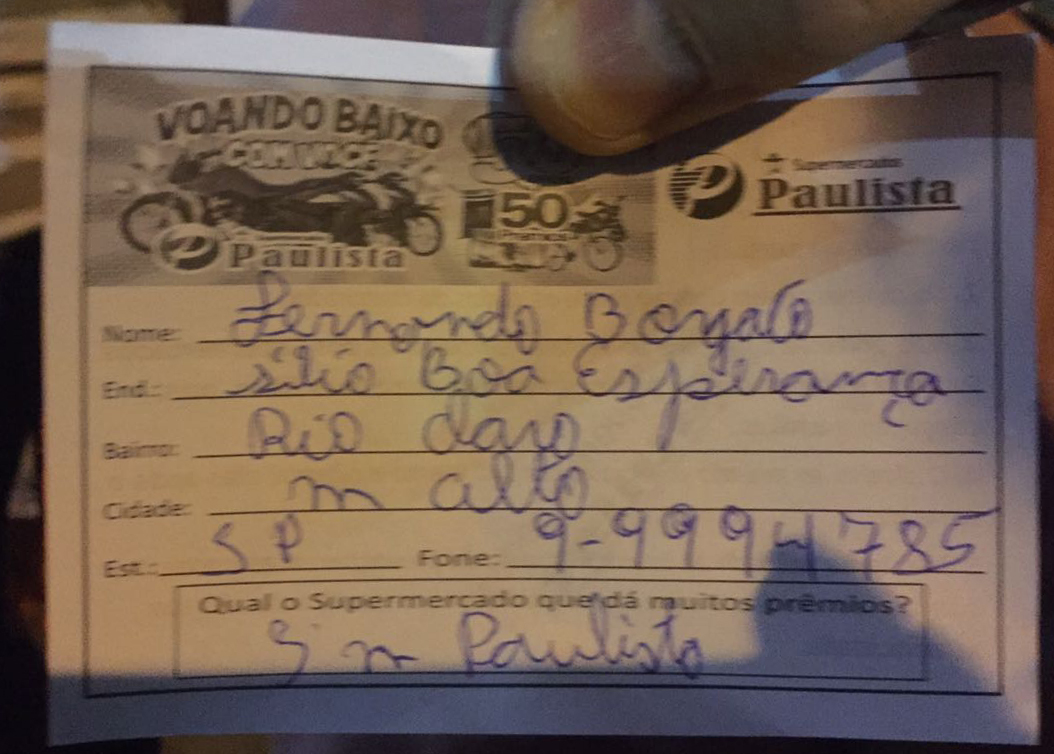 VOANDO BAIXO
COM VOCÊ
Paulista
50
Supermercado
Paulista
Nome: Fernando Bongato
End.: sitio Boa Esperança
Bairro: Rio claro
Cidade: m alto
Est.: SP Fone: 9-9994785
Qual o Supermercado que dá muitos prêmios?
S m Paulista